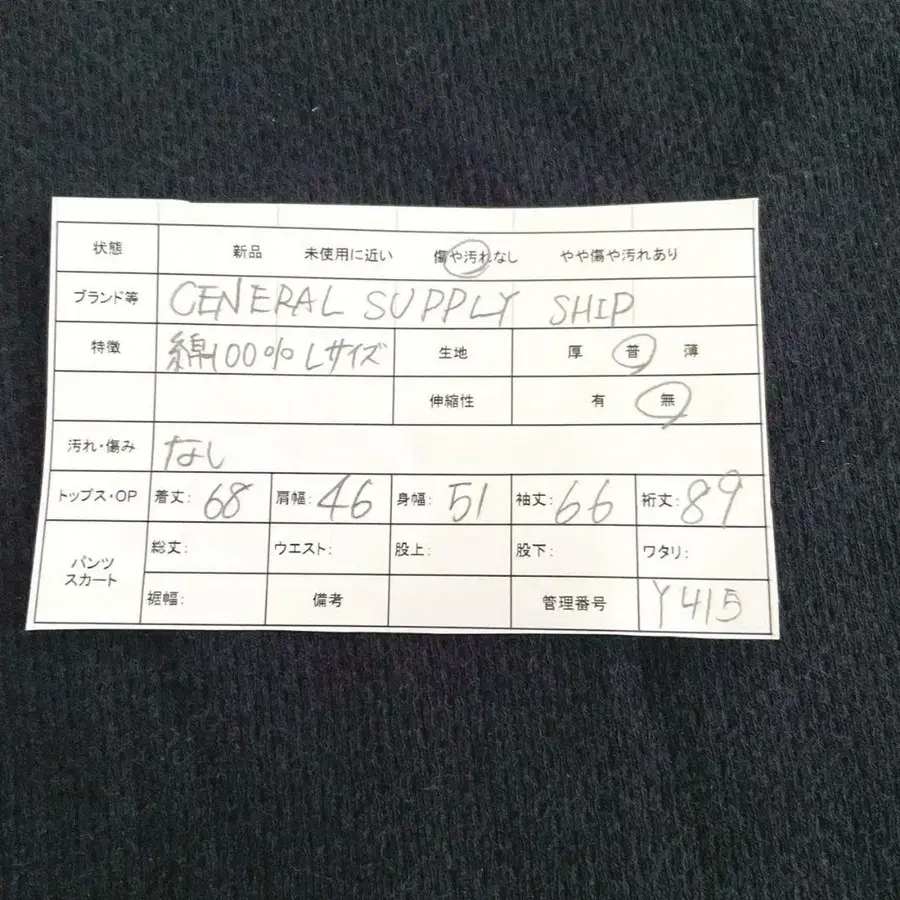 状態 新品 未使用に近い 傷や汚れなし やや傷や汚れあり
ブランド等 GENERAL SUPPLY SHIP
特徴 綿100% Lサイズ 生地 厚 普 薄
伸縮性 有 無
汚れ・傷み なし
トップス・OP 着丈: 68 肩幅: 46 身幅: 51 袖丈: 66 裄丈: 89
パンツ スカート 総丈: ウエスト: 股上: 股下: ワタリ:
裾幅: 備考 管理番号 Y415